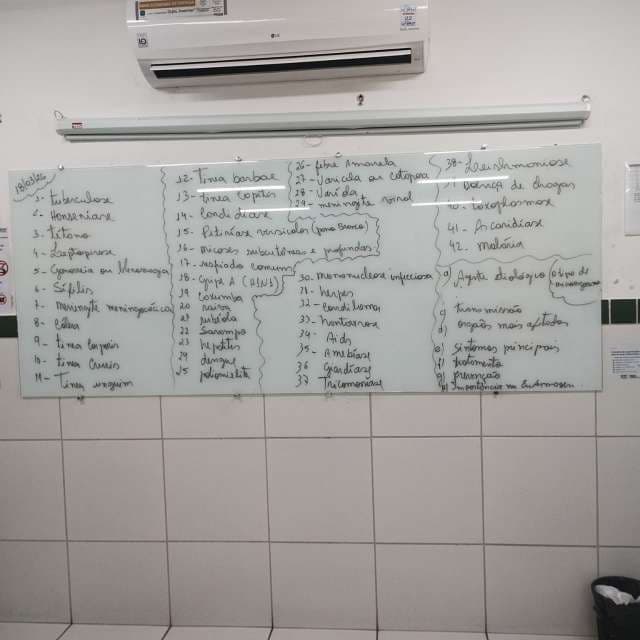 LG
1- tuberculose
2- Hanseníase
3- Tétano
4- Leptospirose
5- Gonorreia ou blenorragia
6- Sífilis
7- Meningite meningocócica
8- Cólera
9- tinea corporis
10- tinea Cruris
11- Tinea unguium
12- Tinea barbae
13- tinea capitis
14- Candidíase
15- Pitiríase versicolor (pano Branco)
16- micoses subcutâneas e profundas
17- resfriado comum
18- Gripe A
19
20 raiva
21 rubéola
22 Sarampo
23 Hepatites
24 dengue
25 poliomielite
26- febre Amarela
27- Varicela ou catapora
28- Varíola
29- meningite viral
30- Mononucleose infecciosa
31- herpes
32- Condiloma
33- hantavirose
34- Aids
35- Amebíase
36 Giardíase
37 Tricomoníase
38- Leishmaniose
39 doença de chagas
40- toxoplasmose
41- Ascaridíase
42- Malária
a) Agente etiológico (o tipo de microorganismo
c) transmissão
d) órgãos mais afetados
e) sintomas principais
f) tratamento
g) prevenção
h) Importância na Enfermagem